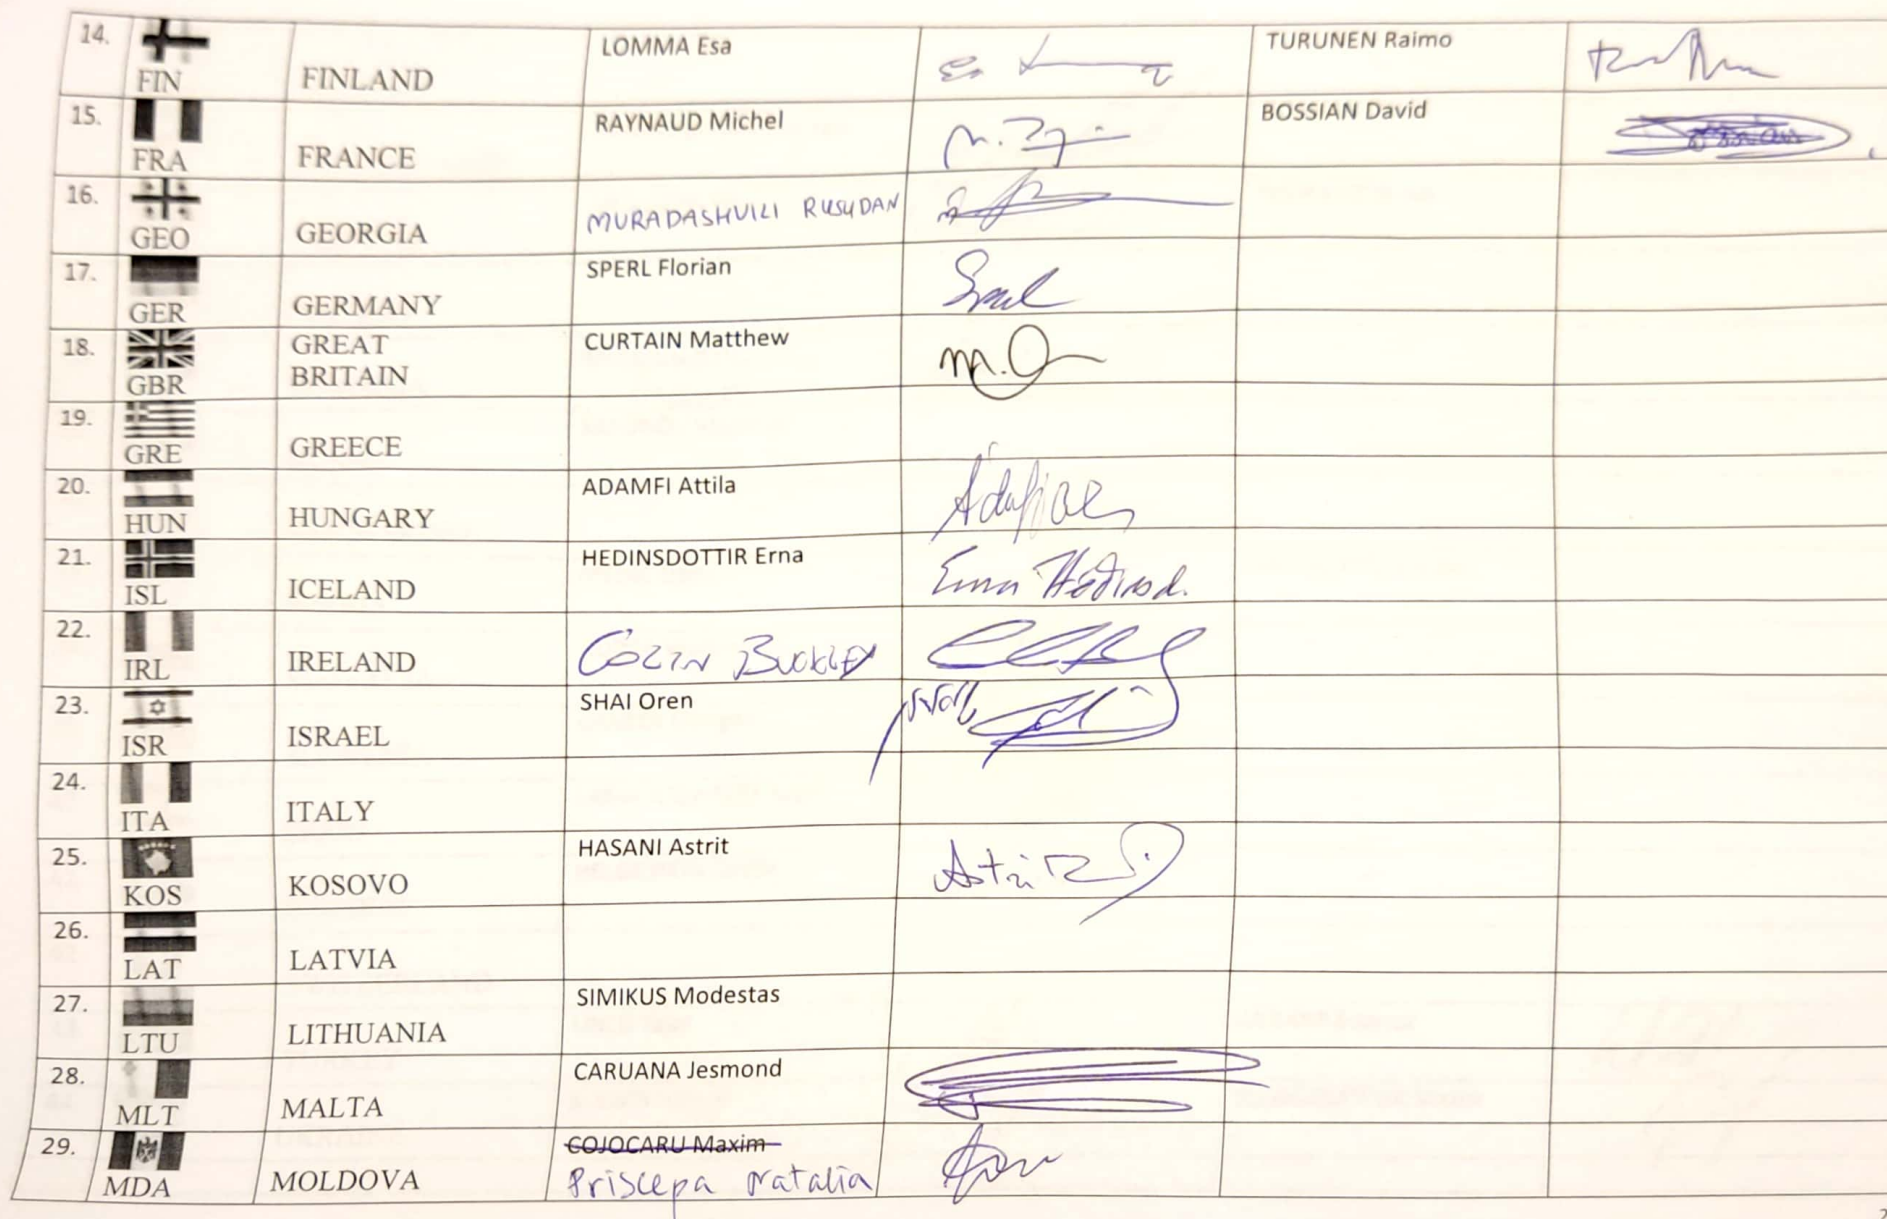 14. FIN FINLAND LOMMA Esa TURUNEN Raimo
15. FRA FRANCE RAYNAUD Michel BOSSIAN David
16. GEO GEORGIA MURADASHVILI RUSUDAN
17. GER GERMANY SPERL Florian
18. GBR GREAT BRITAIN CURTAIN Matthew
19. GRE GREECE
20. HUN HUNGARY ADAMFI Attila
21. ISL ICELAND HEDINSDOTTIR Erna
22. IRL IRELAND COLIN BUCKLEY
23. ISR ISRAEL SHAI Oren
24. ITA ITALY
25. KOS KOSOVO HASANI Astrit
26. LAT LATVIA
27. LTU LITHUANIA SIMIKUS Modestas
28. MLT MALTA CARUANA Jesmond
29. MDA MOLDOVA COJOCARU Maxim
Priscepa Natalia
2